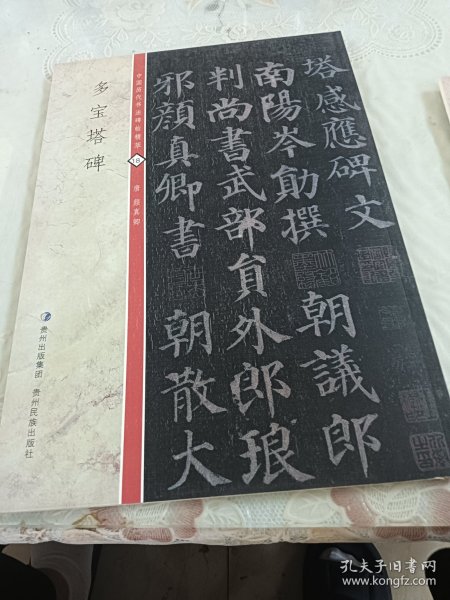 多宝塔碑
中国历代书法碑帖精华
18
唐 颜真卿
贵州出版集团
贵州民族出版社
塔感應碑文
南陽岑勛撰 朝議郎
判尚書武部員外郎琅
邪顏真卿書 朝散大
孔夫子旧书网
www.kongfz.com